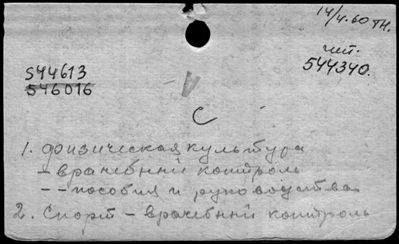 14/4.60 тн.
чит.
544340.
544613
546016
С
1. физическая культура
– врачебный контроль
– – пособия и руководства
2. Спорт – врачебный контроль